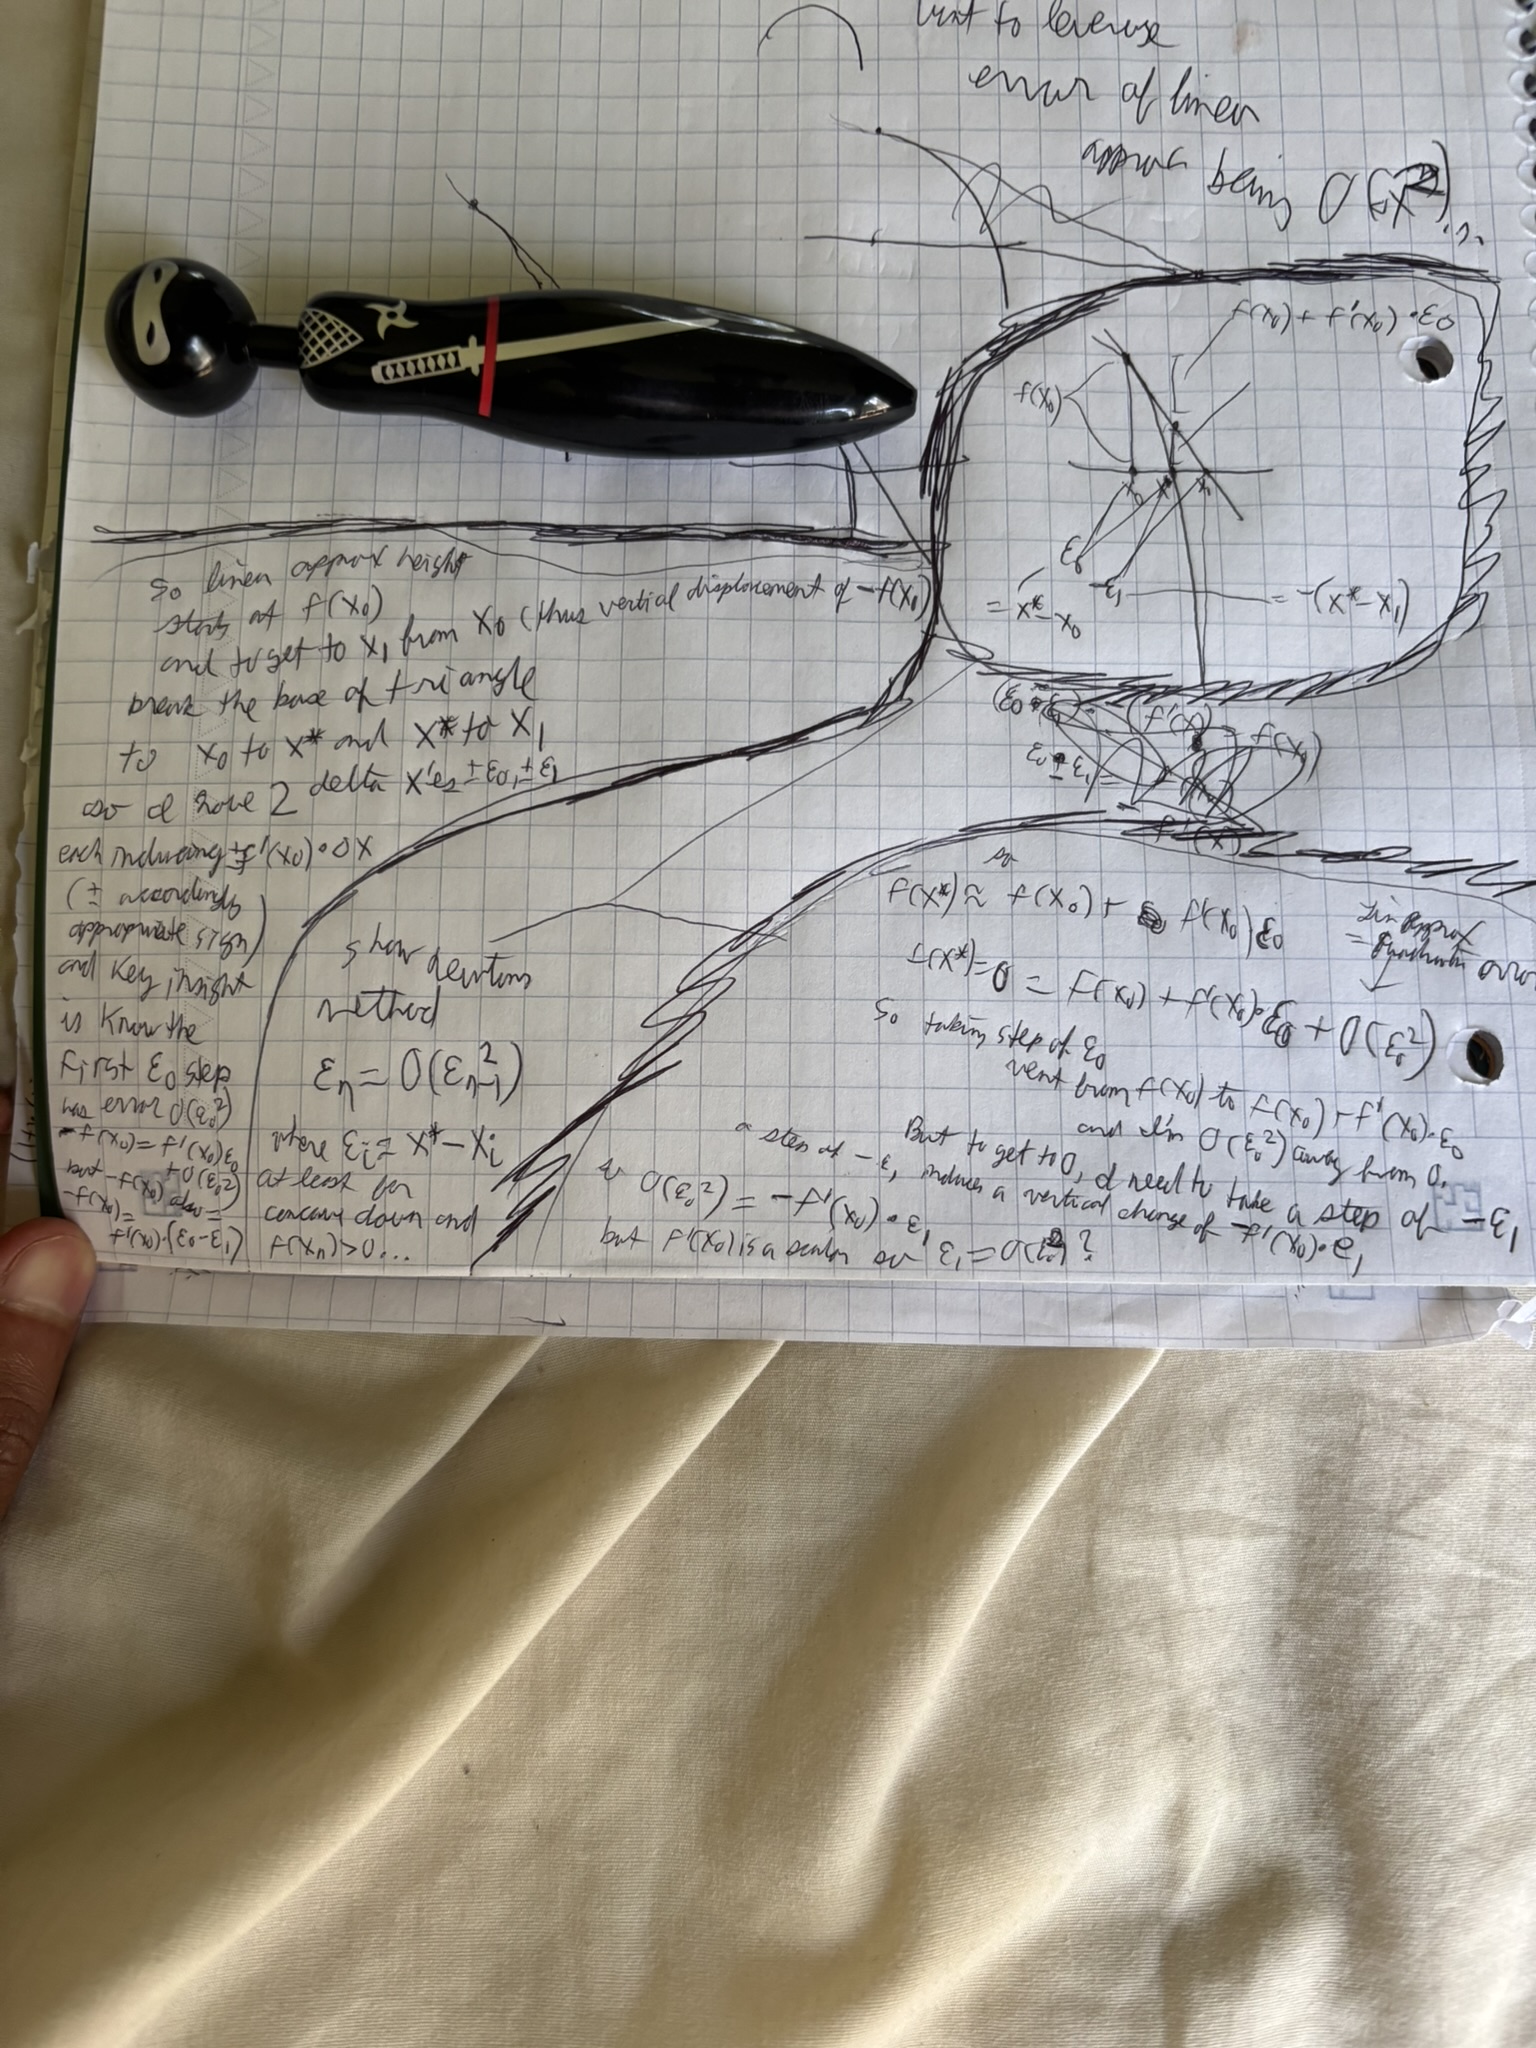 to leverage
error of linear
approx being O(x²)...
f(x₀) + f'(x₀)·ε₀
f(x₀)
x₀ x* x₁
ε₀ -ε₁
= x* - x₀ = -(x* - x₁)
so linear approx height
starts at f(x₀)
and to get to x₁ from x₀ (thus vertical displacement of -f(x₀)
break the base of triangle
to x₀ to x* and x* to x₁
so I have 2 delta x'es ±ε₀, ±ε₁
each inducing ±f'(x₀)·Δx
(± accordingly
appropriate sign)
and key insight
is know the
first ε₀ step
has error O(ε₀²)
-f(x₀) = f'(x₀)ε₀
+ O(ε₀²)
but -f(x₀) also =
-f(x₀) =
f'(x₀)·(ε₀-ε₁)
show newtons
method
εₙ = O(εₙ₋₁²)
where εᵢ = x* - xᵢ
at least for
concave down and
f(xₙ)>0...
so
f(x*) ≈ f(x₀) + f'(x₀)ε₀
lin approx
= quadratic error
f(x*)=0 = f(x₀) + f'(x₀)·ε₀ + O(ε₀²)
so taking step of ε₀
went from f(x₀) to f(x₀) + f'(x₀)·ε₀
and I'm O(ε₀²) away from 0.
But to get to 0, I need to take a step of -ε₁
a step of -ε₁ induces a vertical change of -f'(x₀)·ε₁
so O(ε₀²) = -f'(x₀)·ε₁
but f'(x₀) is a scalar so ε₁ = O(ε₀²)?